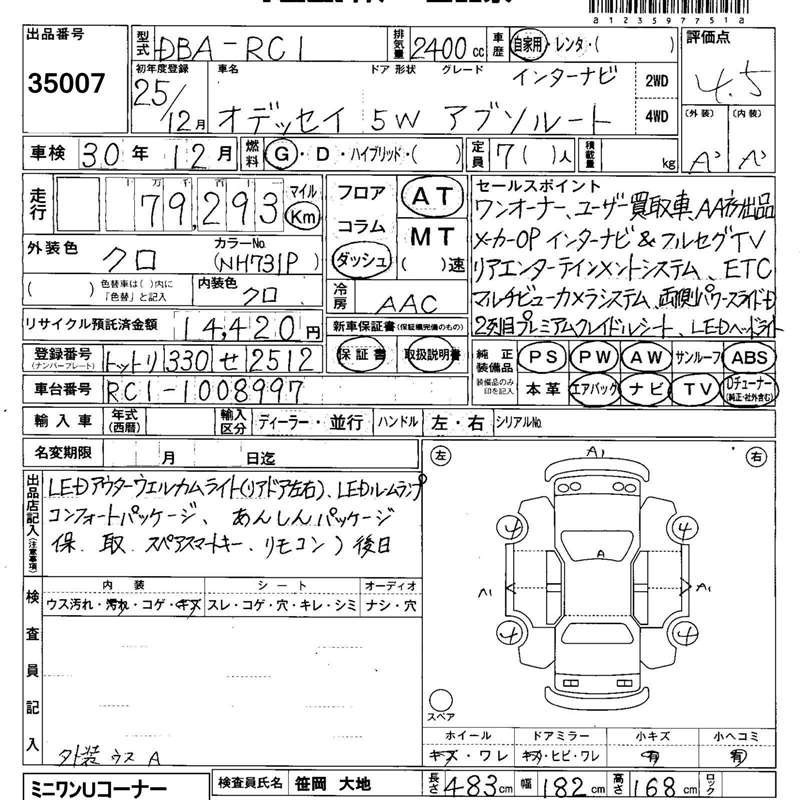 a1235977518
出品番号
35007
型式 DBA-RC1
排気量 2400 cc
車歴 自家用・レンタ・( )
評価点
4.5
(外装) (内装)
A' A'
初年度登録 車名 ドア 形状 グレード
25/12月 オデッセイ 5W アブソルート インターナビ
2WD
4WD
車検 30年 12月
燃料 G・D・ハイブリッド・( )
定員 7( )人
積載量 kg
走行 十万 千 百
79,293 マイル Km
フロア
コラム
ダッシュ
AT
MT
( )速
セールスポイント
ワンオーナー、ユーザー買取車、AA初出品
メーカーOP インターナビ&フルセグTV
リアエンターテインメントシステム、ETC
マルチビューカメラシステム、両側パワースライドD
2列目プレミアムクレイドルシート、LEDヘッドライト
外装色 クロ
カラーNo. (NH731P)
( ) 色替車は( )内に「色替」と記入
内装色 クロ
冷房 AAC
リサイクル預託済金額 14,420円
新車保証書(保証継完備のもの)
保証書 取扱説明書
登録番号(ナンバープレート) トットリ 330 せ 2512
車台番号 RC1-1008997
純正装備品
装備品のみ印を記入
PS PW AW サンルーフ ABS
本革 エアバック ナビ TV Dチューナー(純正・社外含む)
輸入車 年式(西暦) 輸入区分 ディーラー・並行 ハンドル 左・右 シリアルNo.
名変期限 月 日迄
出品店記入(注意事項)
LEDアウターウェルカムライト(リアドア左右)、LEDルームランプ
コンフォートパッケージ、あんしんパッケージ
保、取、スペアスマートキー、リモコン)後日
検査員記入
内装 シート オーディオ
ウス汚れ・汚れ・コゲ・キズ スレ・コゲ・穴・キレ・シミ ナシ・穴
外装 ウス A
左 右
A1
4 4
A
A1 A1
4 4
スペア
ホイール ドアミラー 小キズ 小ヘコミ
キズ・ワレ キズ・ヒビ・ワレ 有 有
ミニワンUコーナー
検査員氏名 笹岡 大地
長さ 483cm 幅 182cm 高さ 168cm ロック